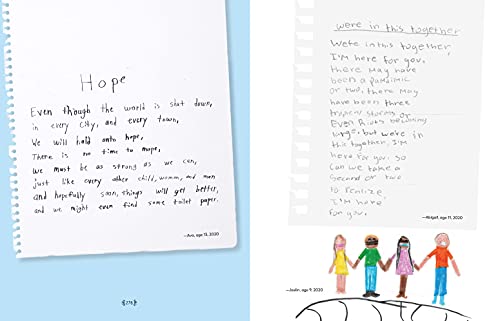 Hope
Even though the world is shut down,
in every city, and every town,
We will hold onto hope,
There is no time to mope,
we must be as strong as we can,
just like every other child, woman, and man
and hopefully soon, things will get better,
and we might even find some toilet paper.
—Ava, age 13, 2020
were in this together
We're in this together,
I'm here for you.
there may have
been a pandimic
or two, there may
have been three
tropical storms or
Even Riots becoming
large, but we're in
this together, I'm
here for you. so
can we take a
second or two
to realize
I'm here
for you.
—Abigail, age 11, 2020
—Joslin, age 9, 2020